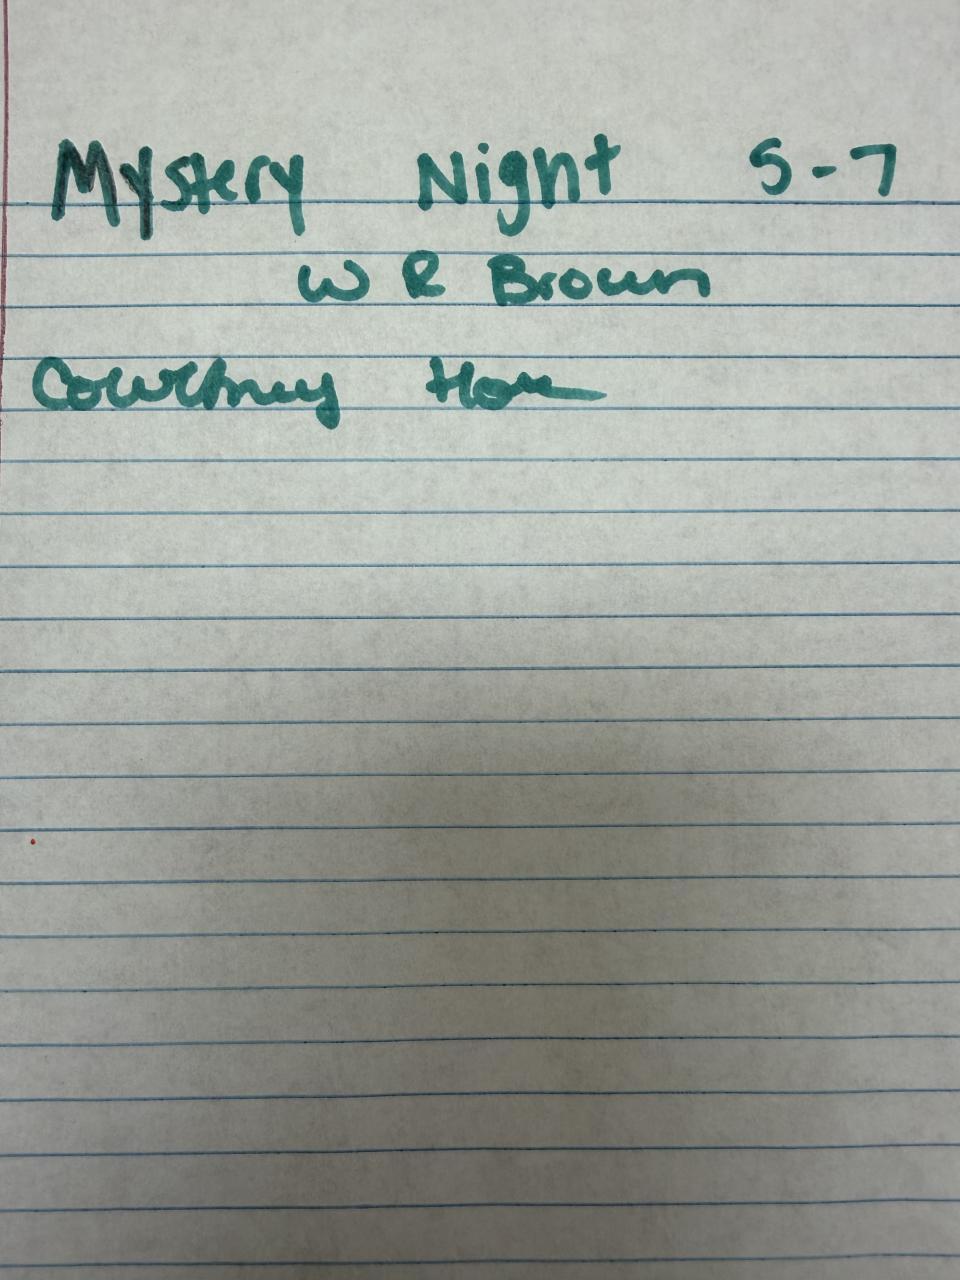 Mystery Night 5-7
W R Brown
Courtney